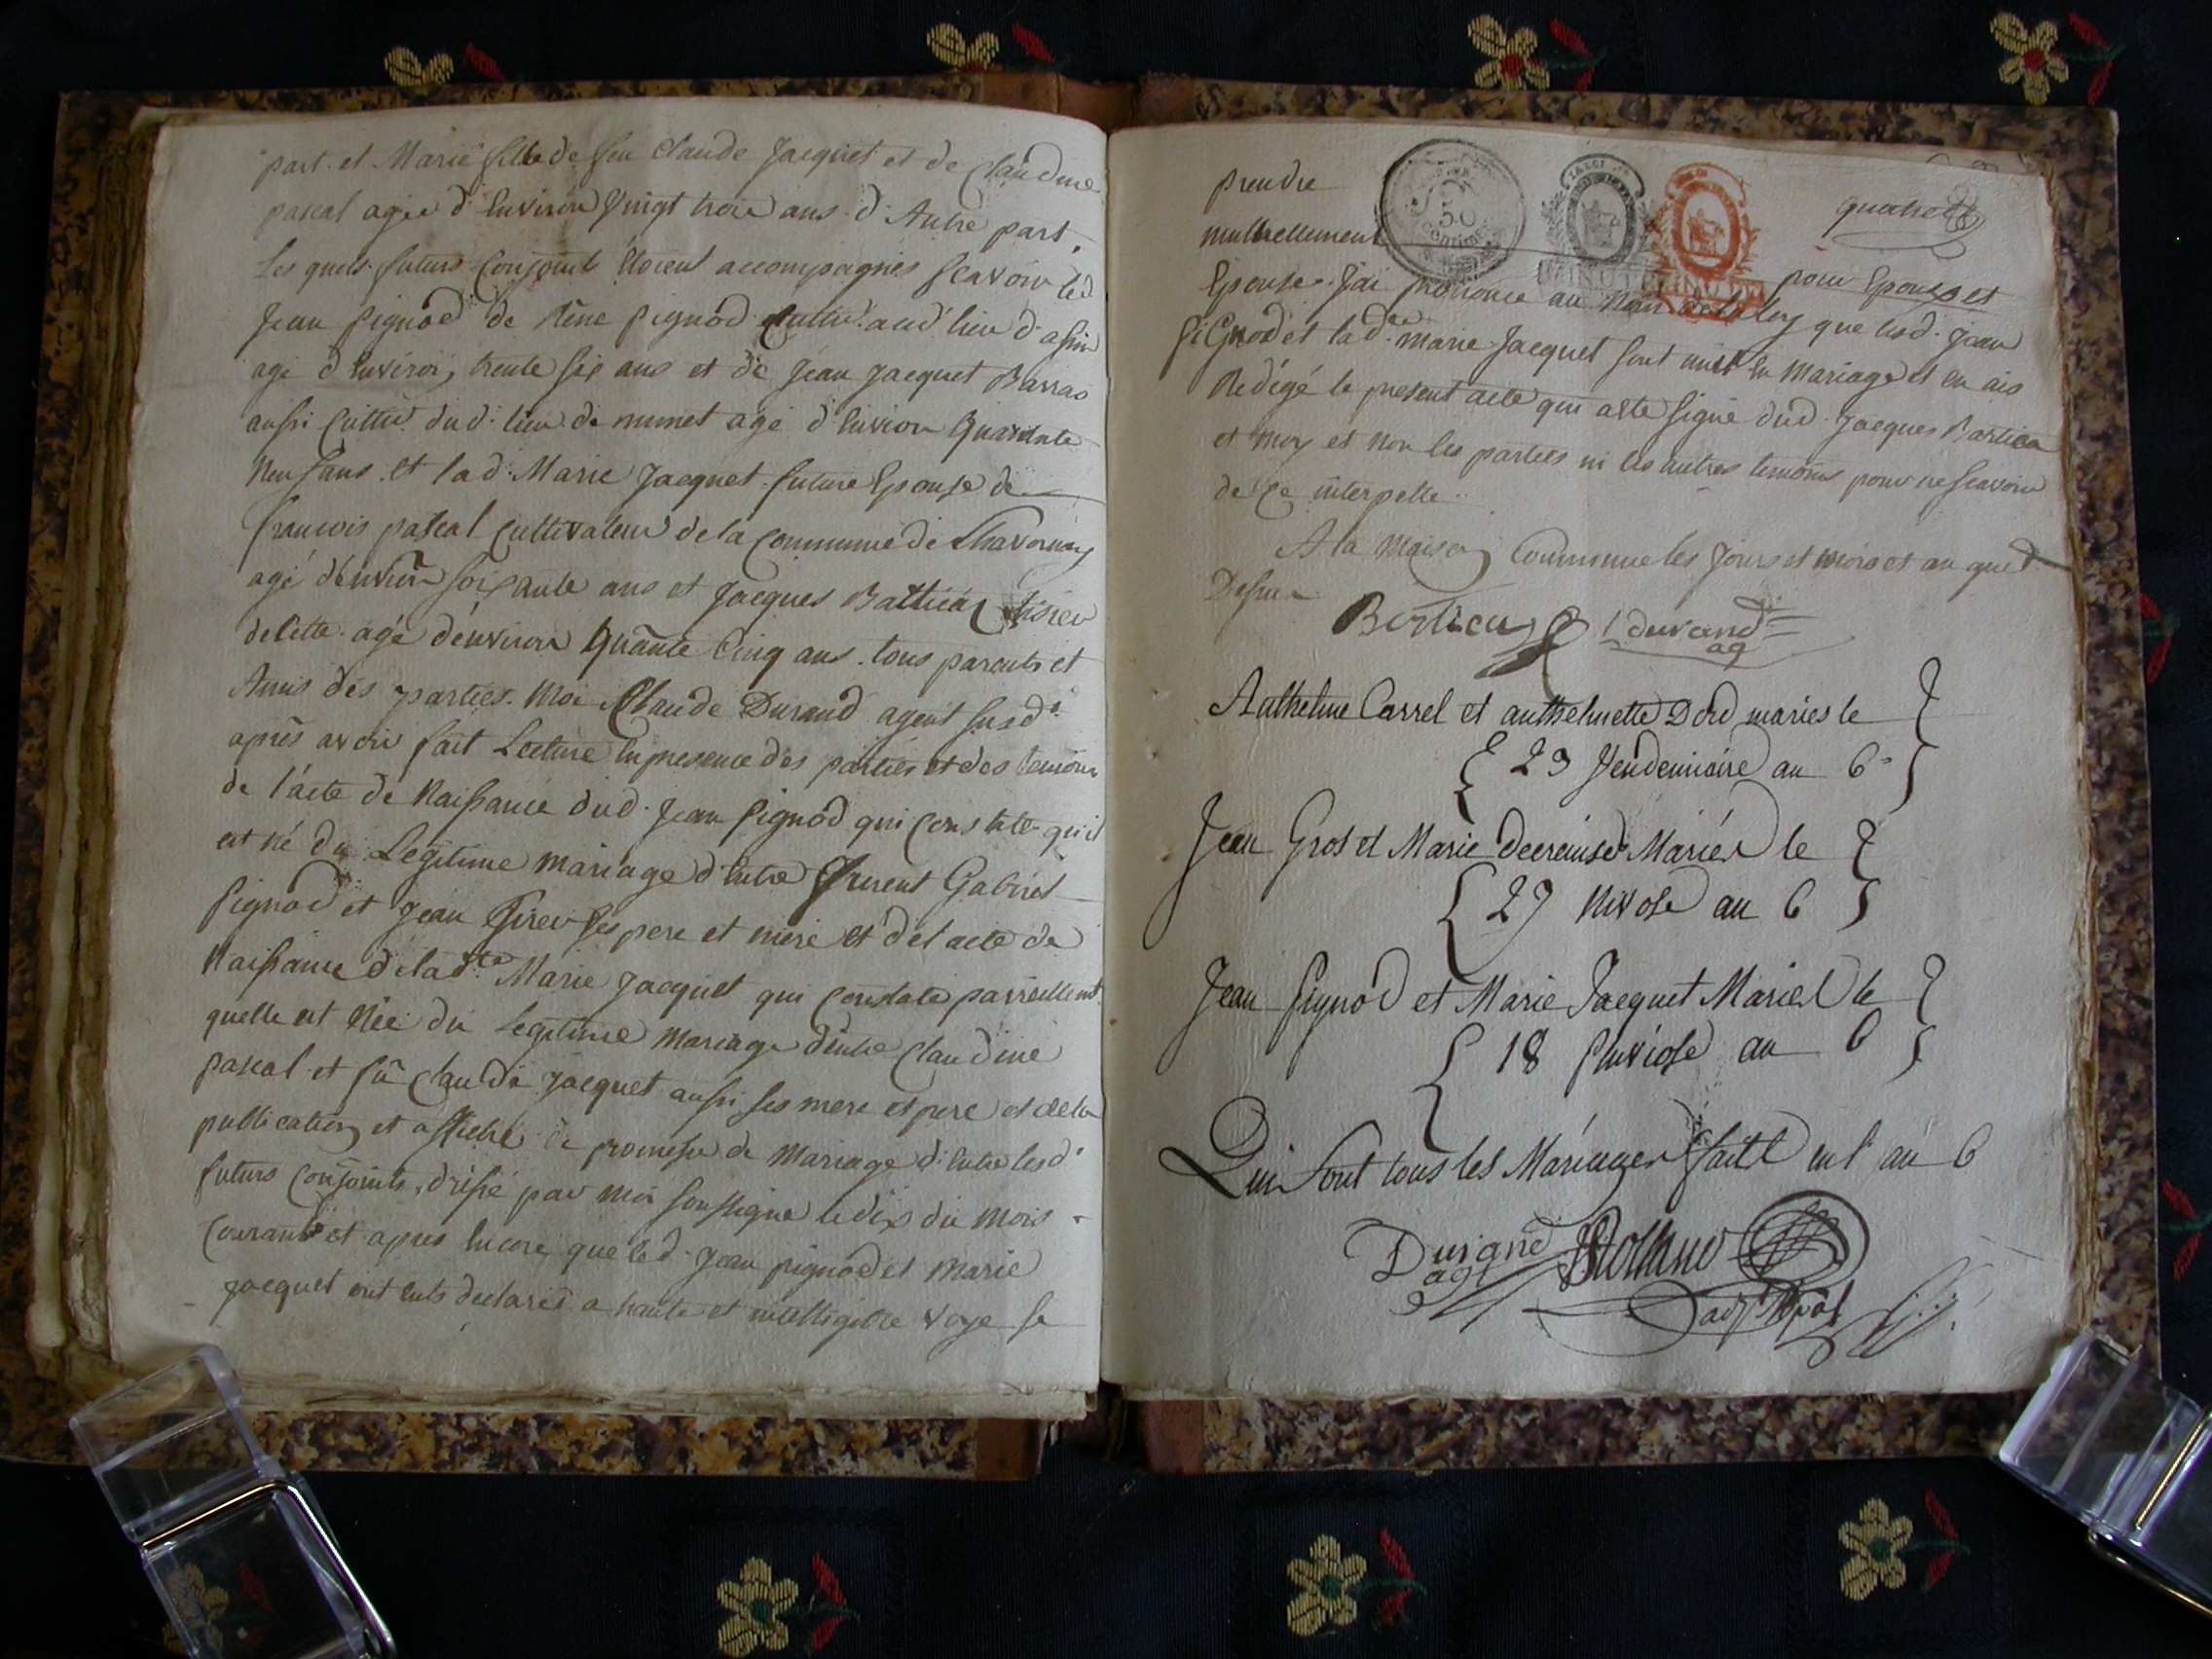 part. et Marie fille de feu Claude Jacquet et de Claudine
pascal agée d'Environ Vingt trois ans d'Autre part.
Les quels futurs Conjoints Etoient accompagnés scavoir led
Jean Pignod de Réne Pignod Cultiv. aud' lieu d'asin
agé d'Environ trente six ans et de Jean Jacquet Barras
aussi Cultiv. dud: lieu de mumet agé d'Environ Quarante
Neuf ans. et lad. Marie Jacquet future Epouse de
francois pascal Cultivateur de la Commune de Chavornay
agé d'environ soixante ans et Jacques Battica
de Cette agé d'environ Quarante Cinq ans. tous parents et
Amis des parties. Moi Claude Durand agent susd.
après avoir fait Lecture En presence des parties et des temoins
de l'acte de Naissance dud. Jean Pignod qui constate qu'il
est né du Legitime mariage d'Entre Gabriel
Pignod et Jean ses pere et mere et de l'acte de
Naissance de lad.te Marie Jacquet qui constate pareillemt
quelle est Née du Legitime Mariage d'entre Claudine
pascal et fû Claude Jacquet aussi ses mere et pere et de la
publication et affiche de promesse de Mariage d'Entre lesd.
futurs Conjoints, dréssé par moi soussigné le dix du mois
Courant et apres Encore que led. Jean pignod et Marie
Jacquet ont Euts declarés a haute et intelligible voye se
prendre
mutuellement
quatre
50
centimes
pour Epoux et
Epouse. J'ai prononcé au Nom de la loy que lesd. Jean
PiGnod et lad.te marie Jacquet sont unit En Mariage et en ais
Redégé le present acte qui a ete signé dud. Jacques Bartica
et moy et non les parties ni les autres temoins pour ne scavoir
de ce interpellé.
A la Maison Commune les Jours et mois et an que
Dessus
Bertica Durand
ag
Anthelme Carrel et anthelmette Dord mariés le
29 Vendemiaire an 6e
Jean Gros et Marie Decroiuse Mariés le
27 Nivose an 6
Jean Pignod et Marie Jacquet Mariés le
18 Pluviose an 6
Qui sont tous les Mariages faits en l'an 6
Durand
agt
adjt Mpal